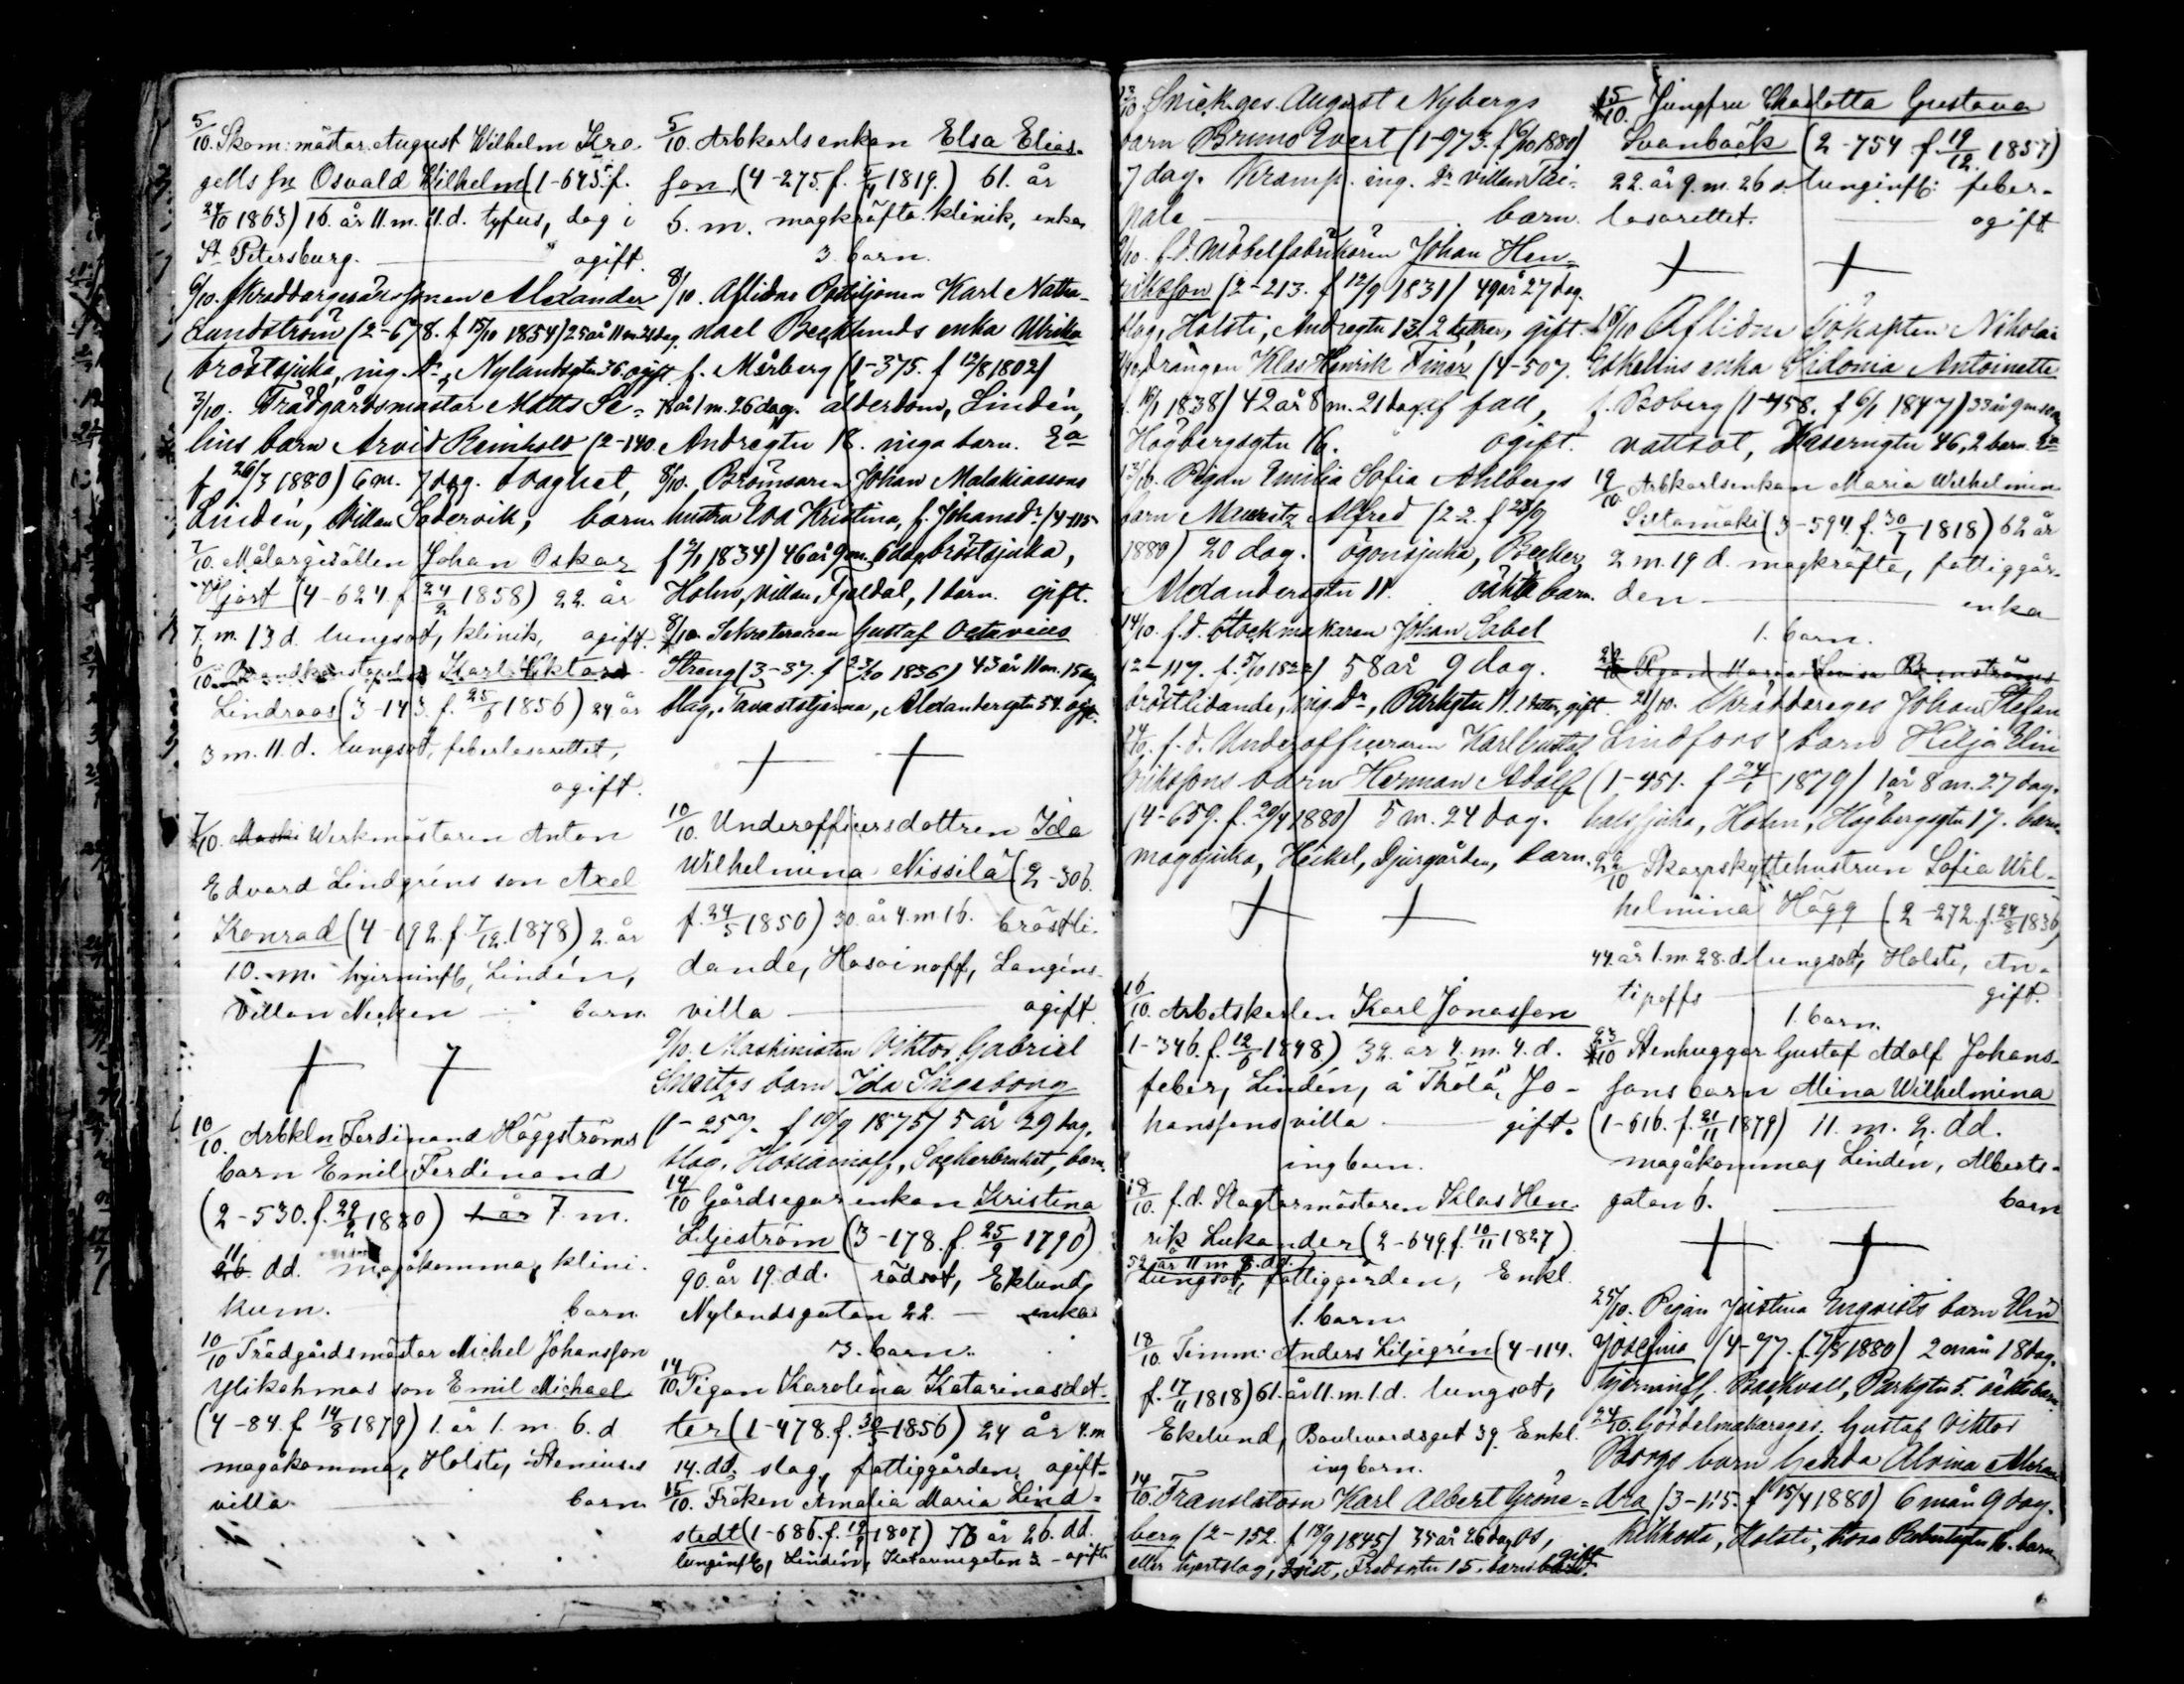 5/10. Skom: mästar. August Wilhelm Kro-
gells son Osvald Wilhelm (1-645. f.
24/10 1863) 16. år 11. m. 11. d. tyfus, dog i
St Petersburg. agift.
6/10. Skräddaregesällen Jonan Alexander
Lundström (2-678. f 15/10 1854) 25 år 11 m. 21 dag.
bröstsjuka, ing. Dr, Nylandsgtn 36. ogift.
3/10. Trädgårdsmästar Matts Se-
lins barn Arvid Reinhold (2-140.
f 26/3 1880) 6 m. 7 dag. svaghet,
Lindén, Villan Södervik, barn
7/10. Målargesällen Johan Oskar
Hjort (4-624. f 24/2 1858) 22. år
7. m. 13 d. lungsot, klinik, agift.
6/10. Brandkonstapeln Karl Viktor
Lindroos (3-143. f. 25/6 1856) 24 år
3 m. 11. d. lungsot, feberlasarettet,
agift.
7/10. Maski Werkmästaren Anton
Edvard Lindgréns son Axel
Konrad (4-192. f. 7/12. 1878) 2. år
10. m. hjerninfl, Lindén,
Villan Necken barn
10/10. Arbkln Ferdinand Häggströms
barn Emil Ferdinand
(2-530. f. 29/2 1880) 1. år 7. m.
11 26. dd. magåkomma, klini-
kum. barn
10/10 Trädgårdsmästar Michel Johansson
Ylikahmas son Emil Michael
(4-84. f 14/8 1879) 1. år 1. m. 6. d
magåkomma, Holsti, Steniuses
villa barn
5/10. Arbkarlsenkan Elsa Elias-
son, (4-275. f. 5/4 1819.) 61. år
6. m. magkräfta klinik, enka
3. barn.
8/10. Aflidne Postiljonen Karl Natha-
nael Beeklunds enka Ulrika
f. Mårberg (1-375. f 12/8 1802)
78 år 1 m. 26 dag. ålderdom, Lindén,
Andregtn 18. inga barn. Ea
8/10. Brömsaren Johan Malakiassons
hustru Eva Kristina, f. Johansdr (4-115
f 2/1 1834) 46 år 9 m. 6 dag bröstsjuka,
Holm, Villan Fjeldal, 1 barn. gift.
8/10. Sekreteraren Gustaf Octavius
Strang (3-37. f 23/10 1836) 43 år 11 m. 15 dag
slag, Tavaststjerna, Alexandersgtn 54. ogift.
10/10. Underofficersdottren Ida
Wilhelmina Nissilä (2-306.
f. 24/5 1850) 30. år 4. m 16. bröstli-
dande, Hosainoff, Langéns
villa agift
9/10. Maskinisten Viktor Gabriel
barn Ida Ingeborg
(1-257. f 10/9 1875) 5 år 29 dag,
slag, Hosainoff, Sockerbruket, barn.
14/10 Gårdsegarenkan Kristina
Liljeström (3-178. f. 25/9 1790)
90. år 19. dd. rödsot, Eklund,
Nylandsgatan 22. enka
3. barn.
14/10. Pigan Karolina Katarinasdot-
ter (1-478. f. 30/5 1856) 24 år 4. m
14. dd. slag, fattiggården, agift.
15/10. Fröken Amalia Maria Lind-
stedt (1-686. f. 19/9 1807) 73 år 26. dd.
lunginfl, Lindén, Katarinegatan 3 - agift
13/10. Snick. ges. August Nybergs
barn Bruno Evert (1-973. f 6/10 1880)
7 dag. Kramp. ing. Dr villan Tai-
pale barn.
9/10. f. d. Möbelfabrikören Johan Hen-
riksson (2-213. f 12/9 1831) 49 år 27 dag.
slag, Holsti, Andregtn 13. 2 döttrar, gift.
drängen Klas Henrik Finér (4-507.
f. 19/1 1838) 42 år 8 m. 21 dag. af fall,
Högbergsgtn 16. ogift.
13/10. Pigan Emilia Sofia Ahlbergs
barn Mauritz Alfred (2-2. f 23/9
1880) 20 dag. ögonsjuka, Becker,
Alexandersgtn 11. oäkta barn.
14/10. f. d. Stockmakaren Johan Sabel
(2-117. f. 5/10 1822) 58 år 9 dag.
bröstlidande, ing Dr, Parkgtn 11. 1 dotter, gift.
14/10. f. d. Underofficeraren Karl Gustaf
Erikssons barn Herman Adolf
(4-659. f. 20/4 1880) 5 m. 24 dag.
magsjuka, Heikel, Djurgården, barn.
16/10. Arbetskarlen Karl Jonasson
(1-346. f. 12/6 1848.) 32. år 4. m. 4. d.
feber, Lindén, å Thölö, Jo-
hanssons villa gift.
ing barn.
18/10. f. d. Slagtarmästaren Klas Hen-
rik Lukander (2-649. f. 10/11 1827)
52. år 11 m 8. dd.
lungsot, fattiggården, Enkl.
1. barn
18/10. Timm: Anders Liljegrén (4-114.
f. 17/11 1818) 61. år 11. m. 1. d. lungsot,
Ekelund, Boulevardsgat 39. Enkl.
ing barn.
14/10. Translatorn Karl Albert Gröne-
berg (2-152. f 18/9 1845) 35 år 26 dag. os,
eller hjertslag, Fredsgtn 15. barnlös gift.
15/10. Jungfru Charlotta Gustava
Svanbäck (2-754. f. 19/12. 1857)
22. år 9. m. 26 d. lunginfl: feber-
lasarettet. agift
16/10 Aflidne Sjökapten Nikolai
Eskelins enka Sidonia Antoinette
f. Boberg (1-458. f 6/1 1847) 33 år 9 m
vattsot, Kaserngtn 46, 2 barn. Ea
19/10. Arbkarlsenkan Maria Wilhelmina
Siltamäki (3-594. f. 30/7 1818) 62 år
2 m. 19 d. magkräfta, fattiggår-
den enka
1. barn.
Pigan Maria Lovisa
21/10. Skräddareges Johan Stefan
Lindfors' barn Hilja Elin
(1-451. f 24/1 1879) 1 år 8 m. 27 dag.
halssjuka, Holm, Högbergsgtn 17. barn
22/10 Skarpskyttehustrun Sofia Wil-
helmina Hägg (2-272. f. 24/8 1836)
44. år 1. m. 28. d. lungsot, Holsti, An-
tipoffs gift.
1. barn.
23/10 Stenhuggar Gustaf Adolf Johans-
sons barn Alina Wilhelmina
(1-616. f. 21/11 1879) 11. m. 2. dd.
magåkomma, Lindén, Alberts-
gatan 6. barn
25/10. Pigan Justina Enqvists barn Elin
Josefina (4-77. f. 7/8 1880) 2 mån 18 dag.
hjerninfl. Backvall, Parkgtn 5. oäkta barn.
24/10. Gördelmakareges. Gustaf Viktor
Borgs barn Gerda Alvina Alexan-
dra (3-115. f 15/4 1880) 6 mån 9 dag.
kikhosta, Holsti, Robertsgtn 16. barn